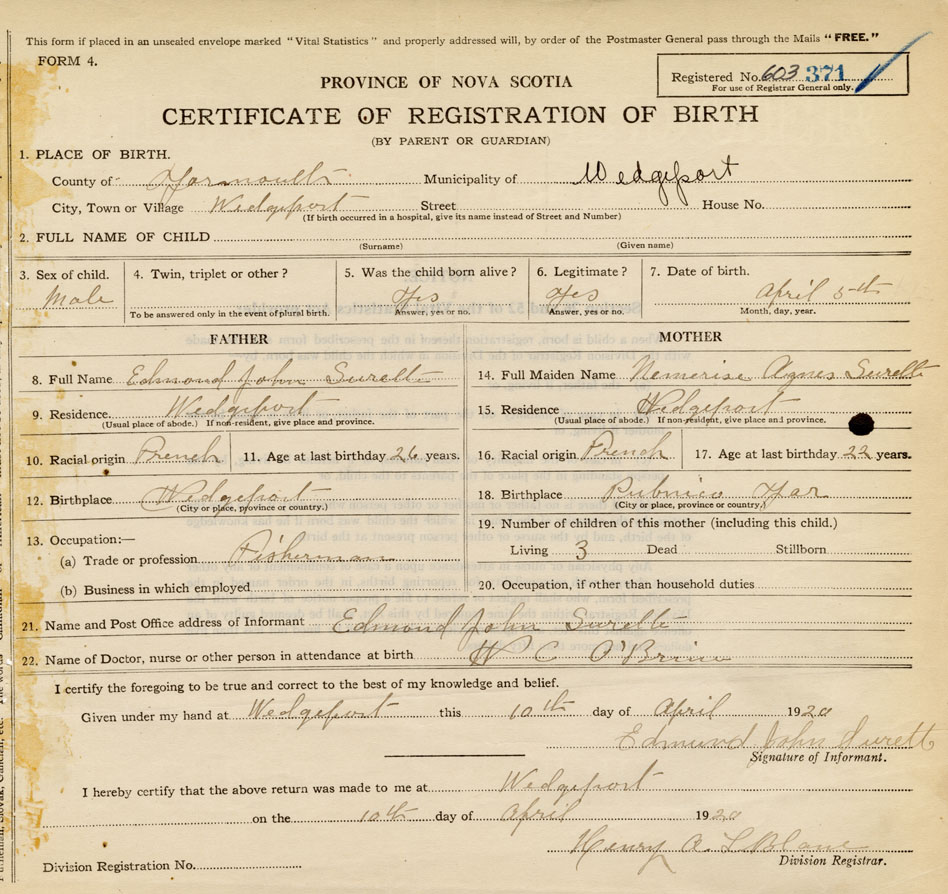 This form if placed in an unsealed envelope marked "Vital Statistics" and properly addressed will, by order of the Postmaster General pass through the Mails "FREE."
FORM 4.
Registered No. 603 371
For use of Registrar General only.
PROVINCE OF NOVA SCOTIA
CERTIFICATE OF REGISTRATION OF BIRTH
(BY PARENT OR GUARDIAN)
1. PLACE OF BIRTH.
County of Yarmouth Municipality of Wedgeport
City, Town or Village Wedgeport Street House No.
(If birth occurred in a hospital, give its name instead of Street and Number)
2. FULL NAME OF CHILD
(Surname) (Given name)
3. Sex of child. 4. Twin, triplet or other? 5. Was the child born alive? 6. Legitimate? 7. Date of birth.
Male Yes Yes April 5th
To be answered only in the event of plural birth. Answer, yes or no. Answer, yes or no. Month, day, year.
FATHER MOTHER
8. Full Name Edmond John Surette 14. Full Maiden Name Nemerise Agnes Surette
9. Residence Wedgeport 15. Residence Wedgeport
(Usual place of abode.) If non-resident, give place and province. (Usual place of abode.) If non-resident, give place and province.
10. Racial origin French 11. Age at last birthday 26 years. 16. Racial origin French 17. Age at last birthday 22 years.
12. Birthplace Wedgeport 18. Birthplace Pubnico Yar
(City or place, province or country.) (City or place, province or country.)
13. Occupation:— 19. Number of children of this mother (including this child.)
(a) Trade or profession Fisherman Living 3 Dead Stillborn
(b) Business in which employed 20. Occupation, if other than household duties
21. Name and Post Office address of Informant Edmond John Surette
22. Name of Doctor, nurse or other person in attendance at birth W C O'Brien
I certify the foregoing to be true and correct to the best of my knowledge and belief.
Given under my hand at Wedgeport this 10th day of April 1920
Edmund John Surette
Signature of Informant.
I hereby certify that the above return was made to me at Wedgeport
on the 10th day of April 1920
Henry A. LeBlanc
Division Registration No. Division Registrar.